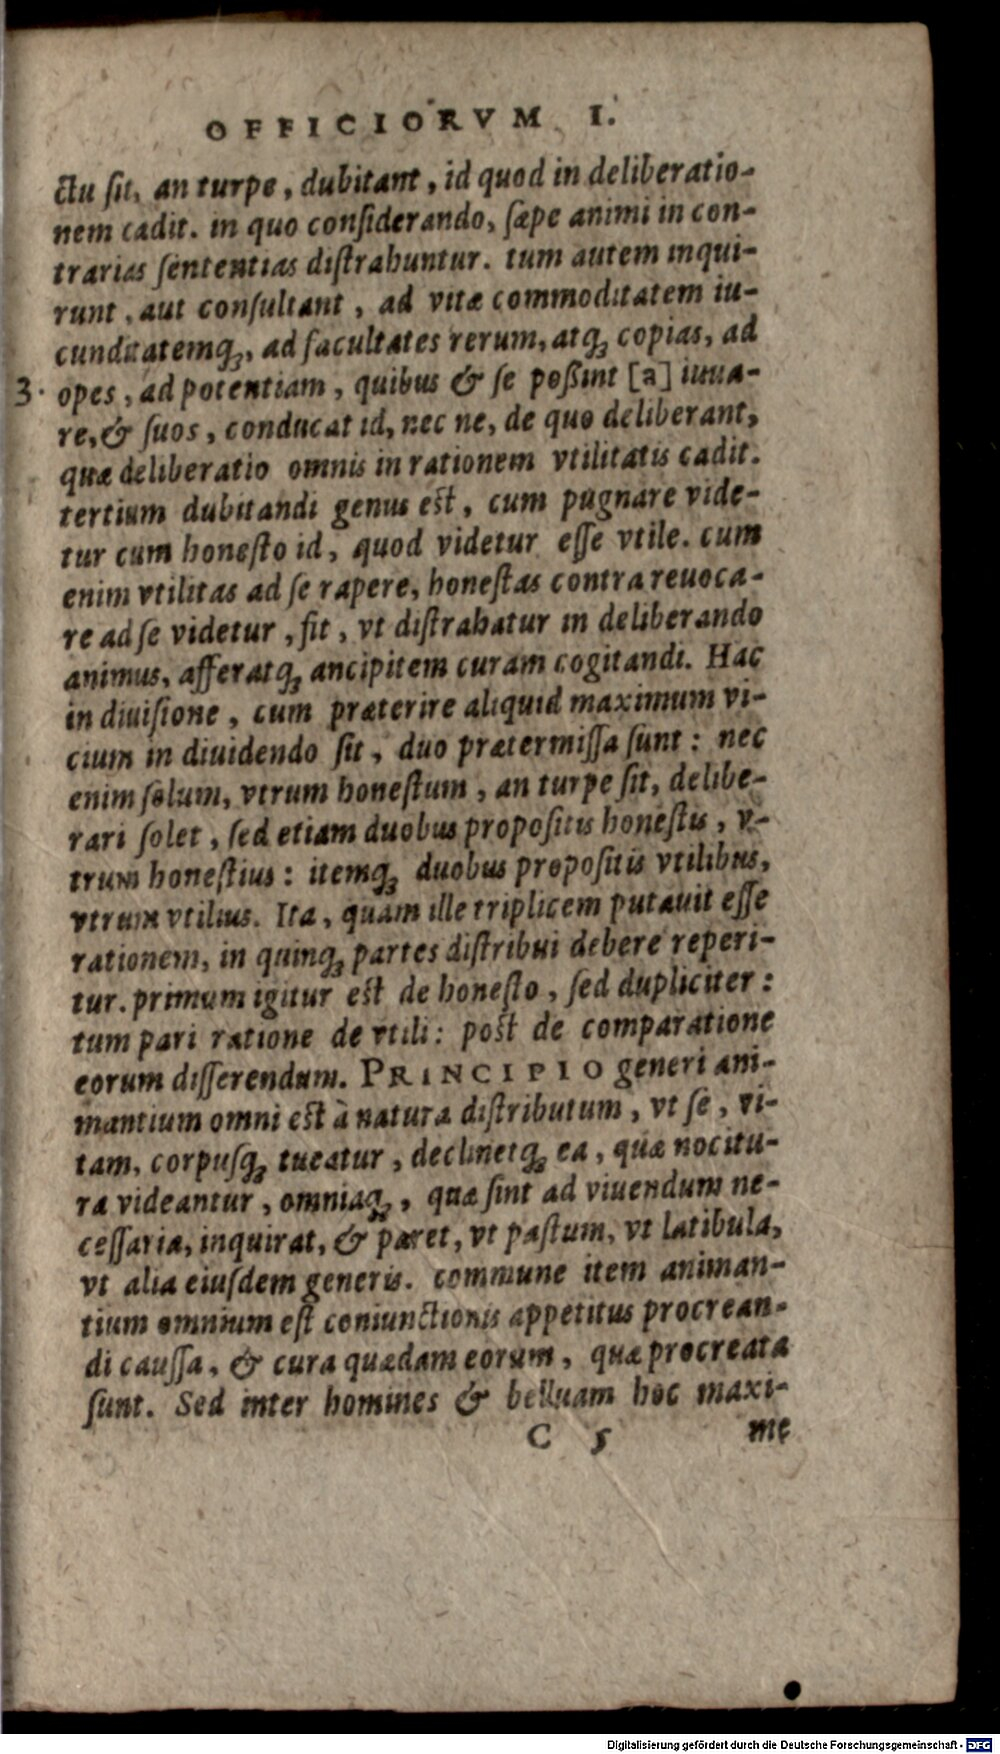 OFFICIORVM I.
ctu ſit, an turpe, dubitant, id quod in deliberatio-
nem cadit. in quo conſiderando, ſæpe animi in con-
trarias ſententias diſtrahuntur. tum autem inqui-
runt, aut conſultant, ad vitæ commoditatem iu-
cunditatemq́ꝫ, ad facultates rerum, atqꝫ copias, ad
3. opes, ad potentiam, quibus & ſe poßint [a] iuua-
re, & ſuos, conducat id, nec ne, de quo deliberant,
quæ deliberatio omnis in rationem vtilitatis cadit.
tertium dubitandi genus eſt, cum pugnare vide-
tur cum honeſto id, quod videtur eſſe vtile. cum
enim vtilitas ad ſe rapere, honeſtas contra reuoca-
re ad ſe videtur, fit, vt diſtrahatur in deliberando
animus, afferatqꝫ ancipitem curam cogitandi. Hac
in diuiſione, cum præterire aliquid maximum vi-
cium in diuidendo ſit, duo prætermiſſa ſunt: nec
enim ſolum, vtrum honeſtum, an turpe ſit, delibe-
rari ſolet, ſed etiam duobus propoſitis honeſtis, v-
trum honeſtius: itemqꝫ duobus propoſitis vtilibus,
vtrum vtilius. Ita, quam ille triplicem putauit eſſe
rationem, in quinqꝫ partes diſtribui debere reperi-
tur. primum igitur eſt de honeſto, ſed dupliciter:
tum pari ratione de vtili: poſt de comparatione
eorum diſſerendum. PRINCIPIO generi ani-
mantium omni eſt à natura diſtributum, vt ſe, vi-
tam, corpuſqꝫ tueatur, declinetqꝫ ea, quæ nocitu-
ra videantur, omniaqꝫ, quæ ſint ad viuendum ne-
ceſſaria, inquirat, & paret, vt paſtum, vt latibula,
vt alia eiuſdem generis. commune item animan-
tium omnium eſt coniunctionis appetitus procrean-
di cauſſa, & cura quædam eorum, quæ procreata
ſunt. Sed inter homines & belluam hoc maxi-
C 5 me
Digitalisierung gefördert durch die Deutsche Forschungsgemeinschaft - DFG